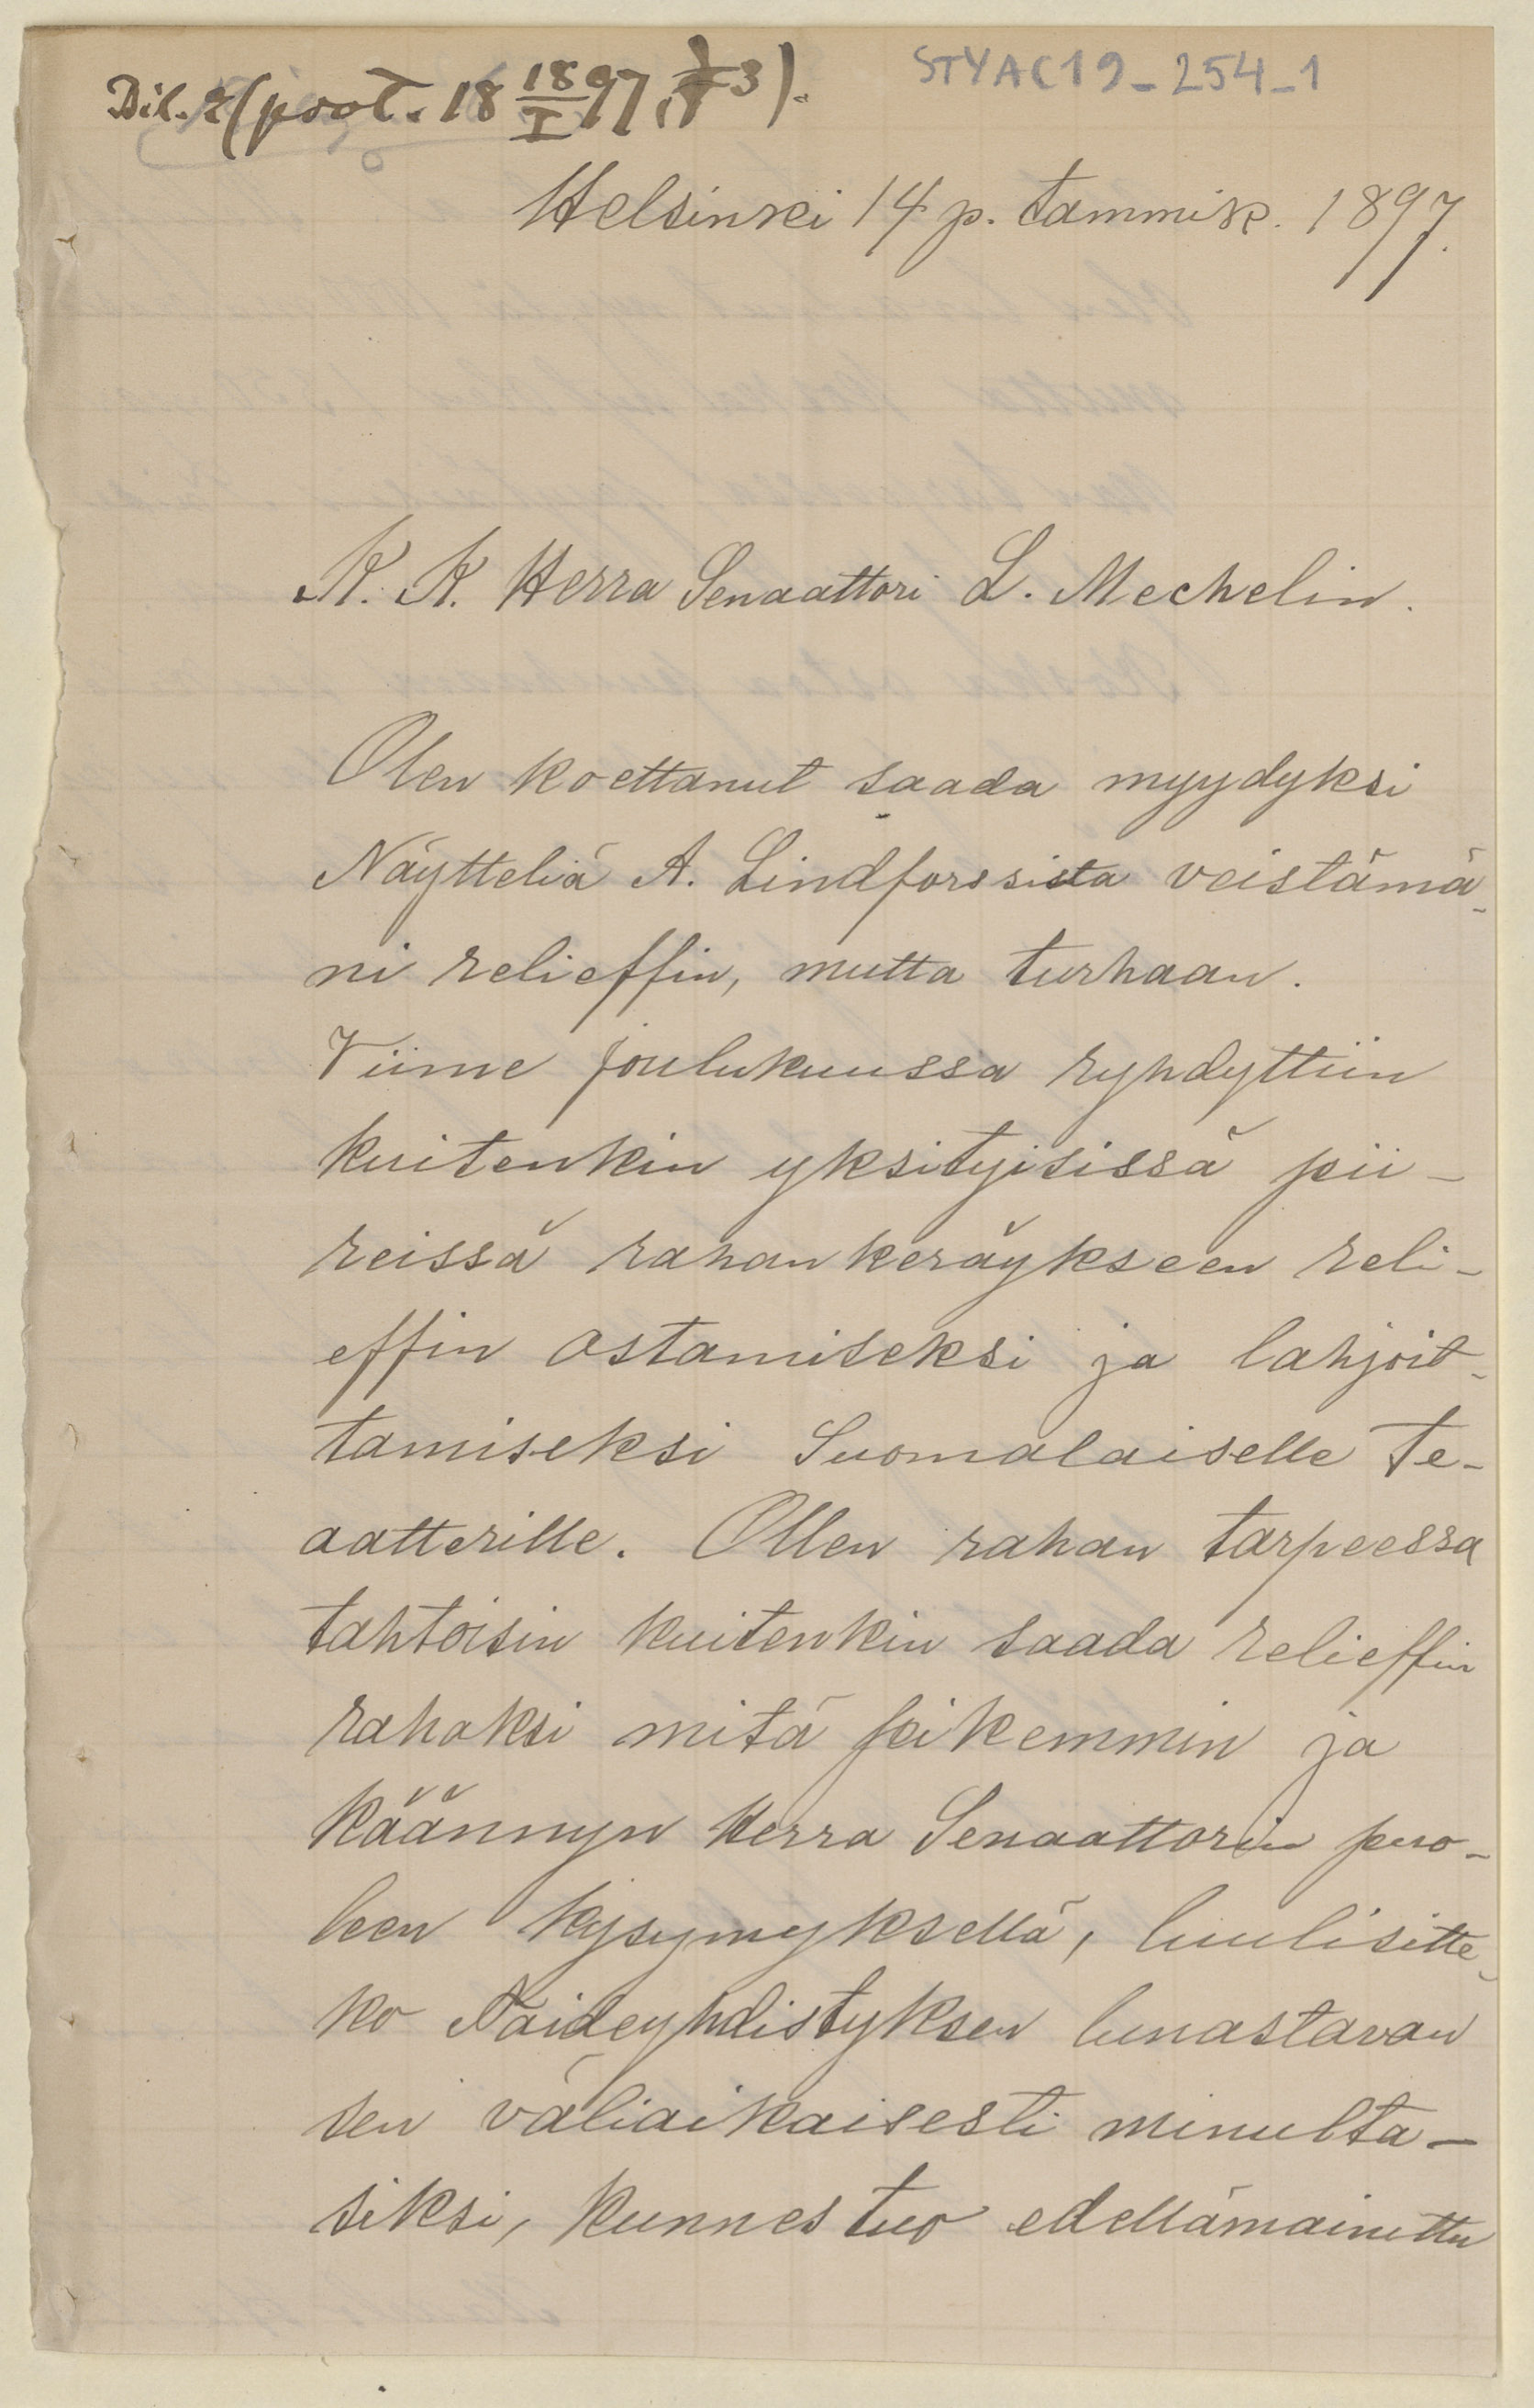 Bil. 2 (prot. 18 18/I 97, § 3).
STYAC19_254_1
Helsinki 14 p. tammik. 1897.
K. K. Herra Senaattori L. Mechelin.
Olen koettanut saada myydyksi
Näytteliä A. Lindforssista veistämä-
ni relieffin, mutta turhaan.
Viime joulukuussa ryhdyttiin
kuitenkin yksityisissä pii-
reissä rahankeräykseen reli-
effin ostamiseksi ja lahjoit-
tamiseksi Suomalaiselle te-
aatterille. Ollen rahan tarpeessa
tahtoisin kuitenkin saada relieffin
rahaksi mitä pikemmin ja
käännyn Herra Senaattorin puo-
leen kysymyksellä, luulisitte-
ko Taideyhdistyksen lunastavan
sen väliaikaisesti minulta-
siksi, kunnes tuo edellämainittu